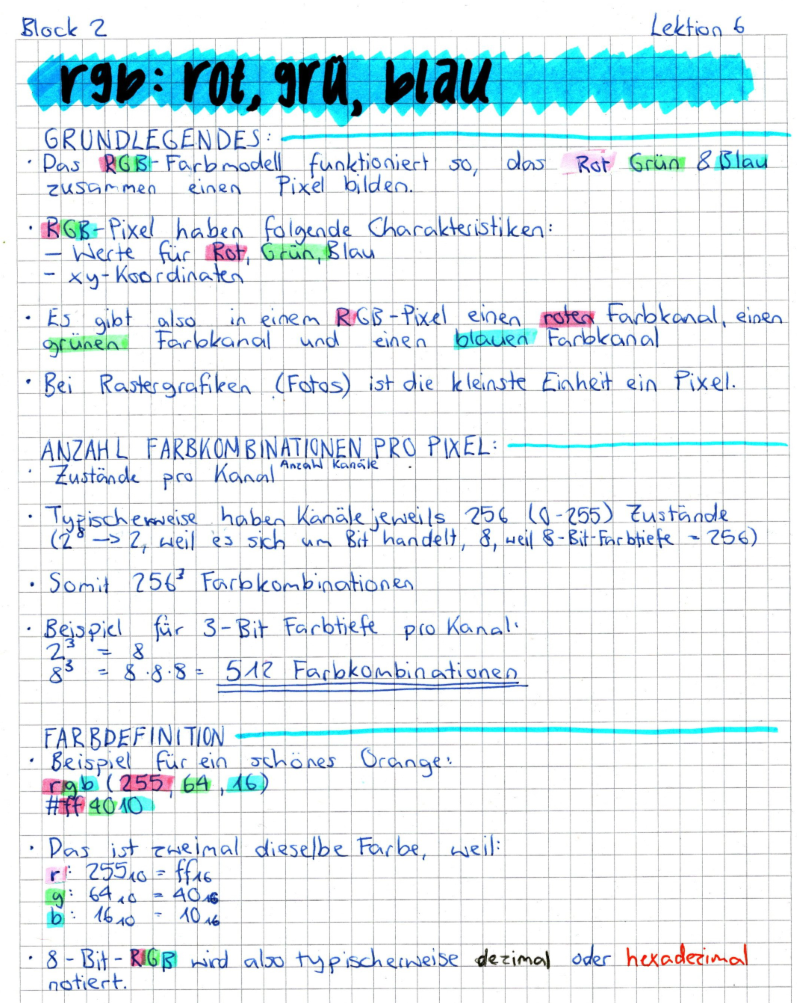 Block 2
Lektion 6
rgb: rot, grü, blau
GRUNDLEGENDES:
· Das RGB-Farbmodell funktioniert so, das Rot Grün & Blau
zusammen einen Pixel bilden.
· RGB-Pixel haben folgende Charakteristiken:
- Werte für Rot, Grün, Blau
- xy-Koordinaten
· Es gibt also in einem RGB-Pixel einen roten Farbkanal, einen
grünen Farbkanal und einen blauen Farbkanal
· Bei Rastergrafiken (Fotos) ist die kleinste Einheit ein Pixel.
ANZAHL FARBKOMBINATIONEN PRO PIXEL:
· Zustände pro Kanal^Anzahl Kanäle
· Typischerweise haben Kanäle jeweils 256 (0-255) Zustände
(2⁸ -> 2, weil es sich um Bit handelt, 8, weil 8-Bit-Farbtiefe = 256)
· Somit 256³ Farbkombinationen
· Beispiel für 3-Bit Farbtiefe pro Kanal:
2³ = 8
8³ = 8·8·8 = 512 Farbkombinationen
FARBDEFINITION
· Beispiel für ein schönes Orange:
rgb (255, 64, 16)
#ff4010
· Das ist zweimal dieselbe Farbe, weil:
r: 255₁₀ = ff₁₆
g: 64₁₀ = 40₁₆
b: 16₁₀ = 10₁₆
· 8-Bit-RGB wird also typischerweise dezimal oder hexadezimal
notiert.